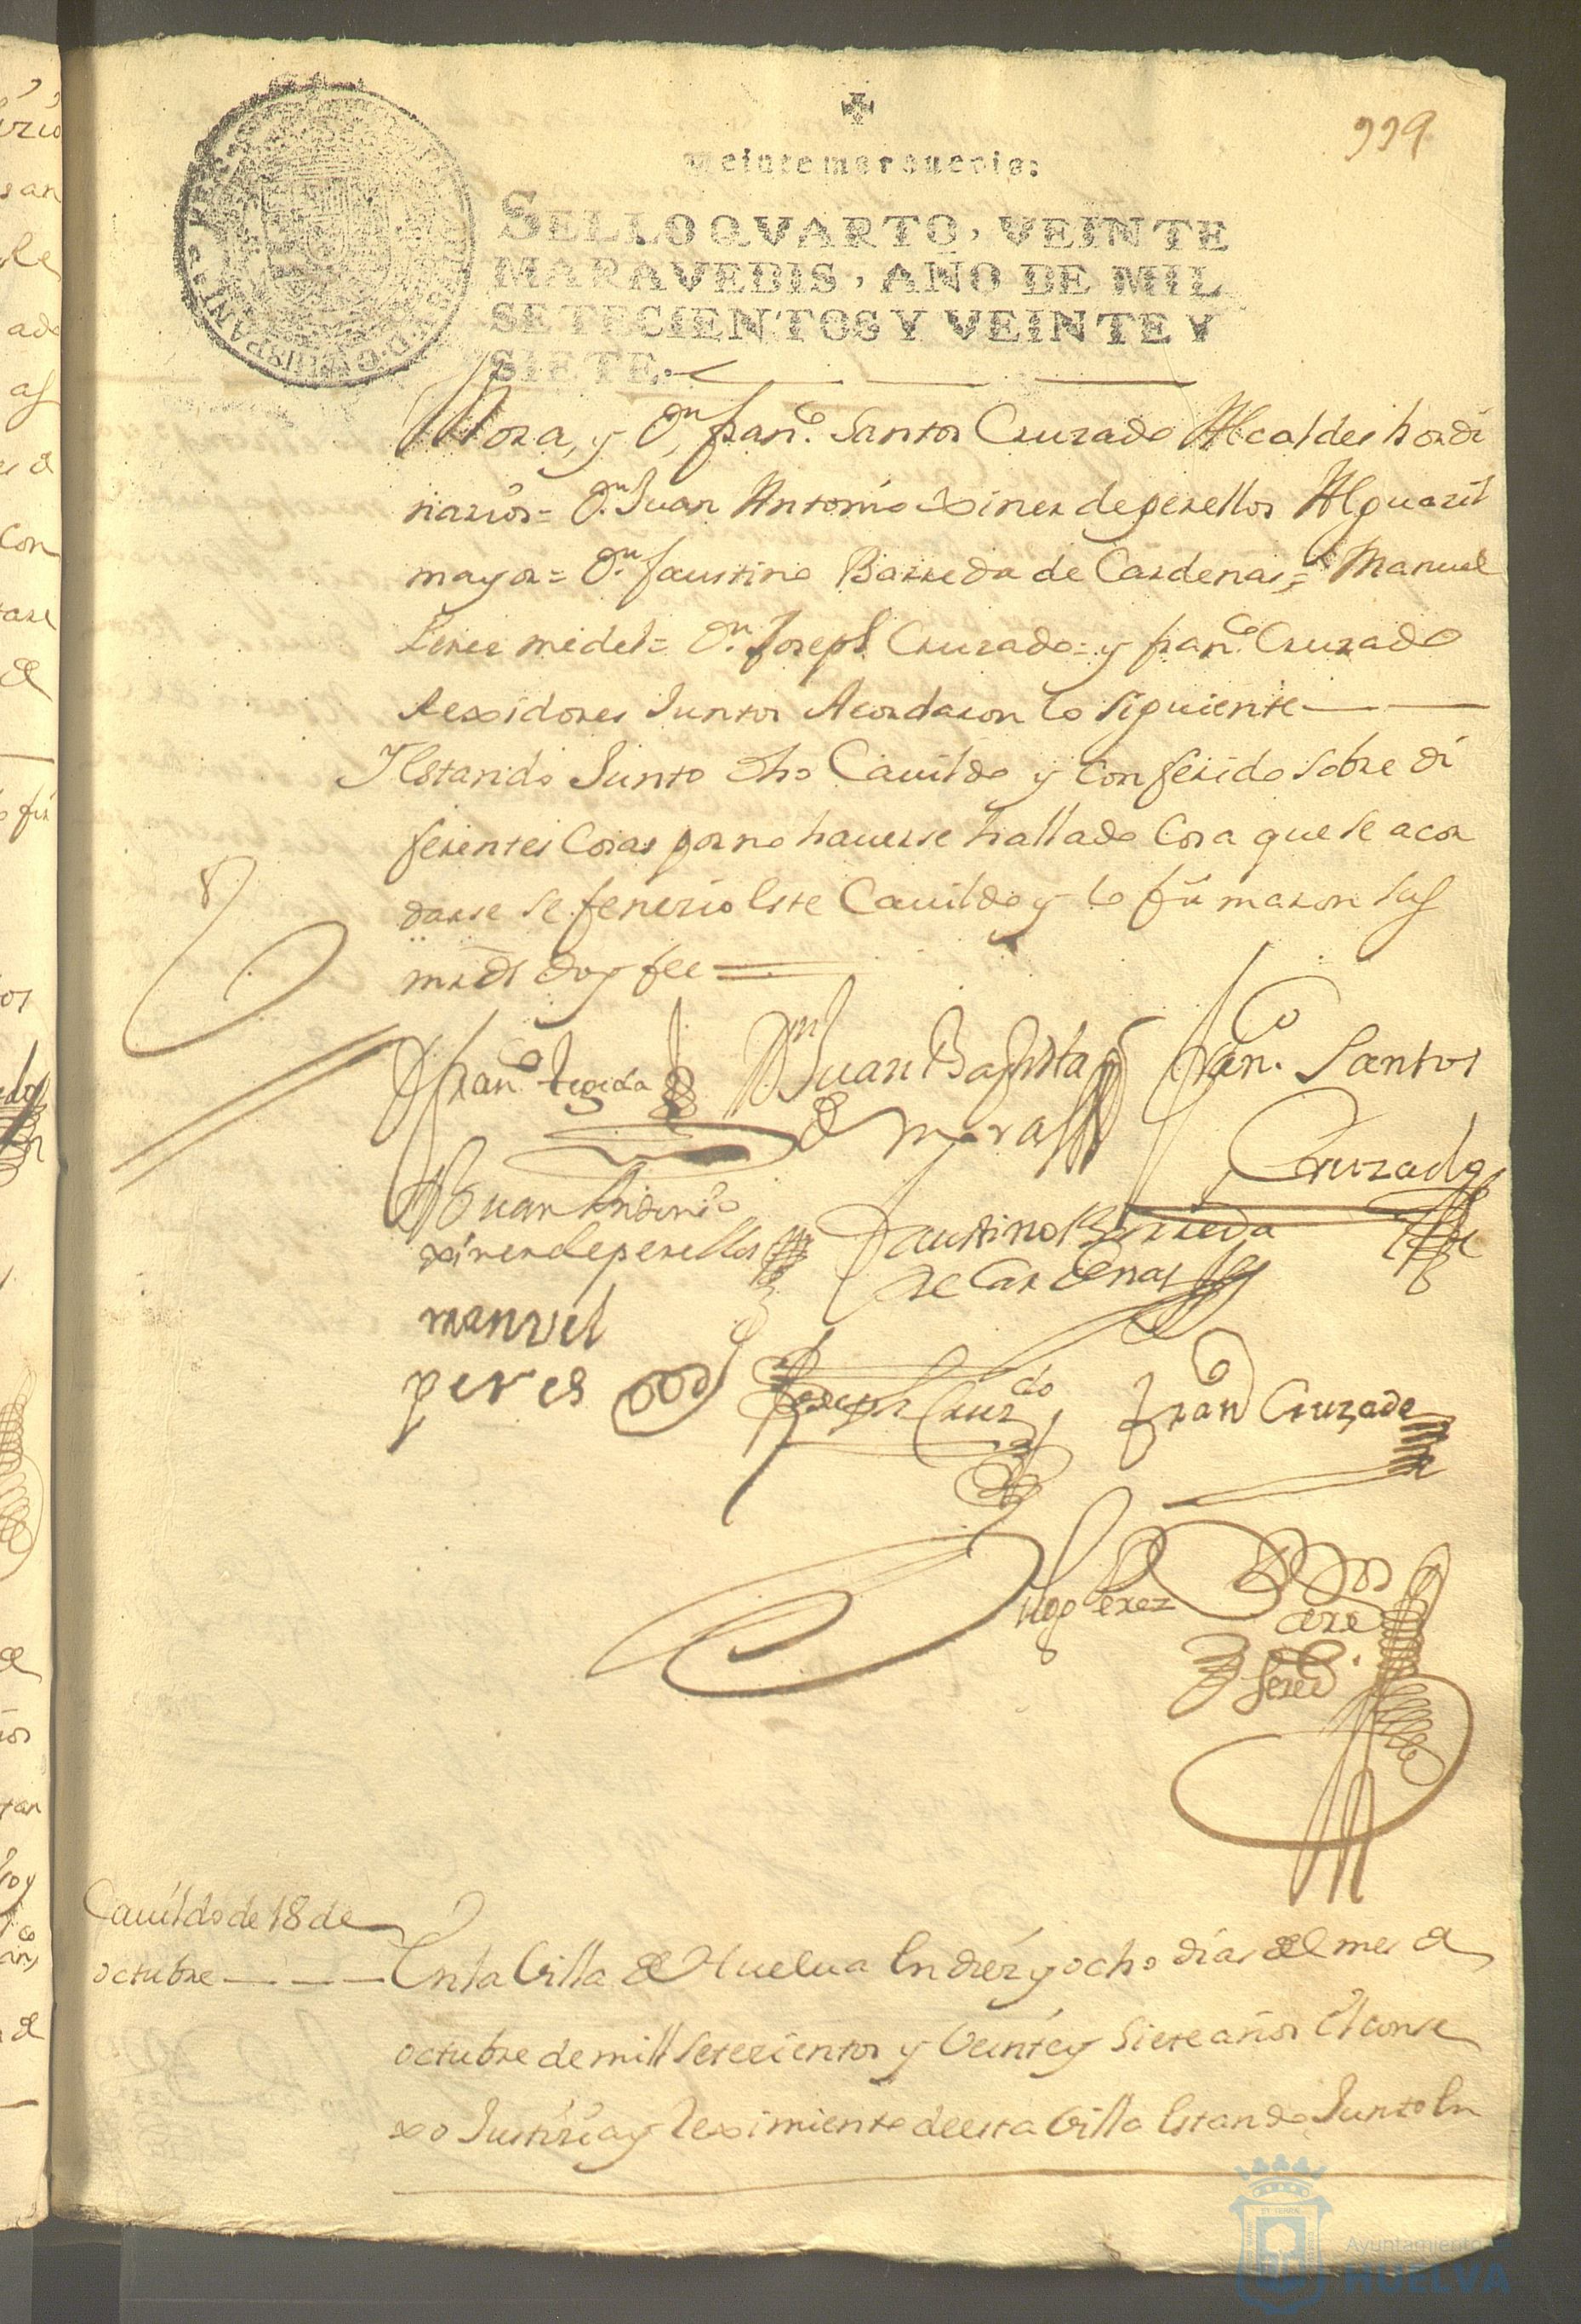 999
Veinte marauedis:
SELLO QVARTO, VEINTE
MARAVEDIS, AÑO DE MIL
SETECIENTOS Y VEINTE Y
SIETE.
Mora, y Dn, franco. Santos Cruzado Alcaldes hordi
narios= Dn. Juan Antonio xinez deperellos Alguazil
mayor= Dn. faustino Barreda de Cardenas,= Manuel
Perez medel= Dn. Joseph Cruzado= y franco. Cruzado
Rexidores Juntos Acordaron lo siguiente
Y estando Junto dho Cauildo y Conferido sobre di
ferentes Cosas porno hauerse hallado Cosa que se acor
darse se fenezio este Cauildo y lo firmaron sus
mrds doy fee
Juan Baptista
de mora
Franco. Santos
Cruzado
Juan Antonio
xinez deperellos
Faustino Barreda
de Cardenas
manuel
peres
Joseph Cruzdo
Franco Cruzado
Diego Perez
Cauildo de 18 de
octubre
En la Villa de Huelua en diez y ocho dias del mes de
octubre de mill setezientos y Veinte y siete años el conse
xo Justizia y Reximiento deesta Villa estando Junto en
Ayuntamiento
HUELVA